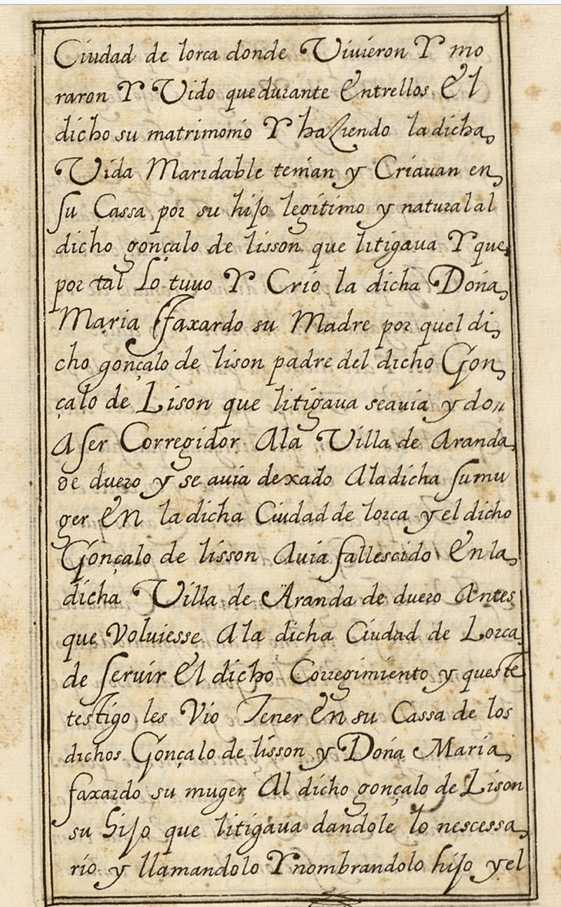 Ciudad de lorca donde Vivieron Y mo
raron Y Vido que durante Entrellos El
dicho su matrimonio Y haziendo la dicha
Vida Maridable tenian y Criauan en
su Cassa por su hijo legitimo y natural al
dicho gonçalo de lisson que litigaua Y que
por tal Lo tuuo Y Crio la dicha Doña
Maria faxardo su Madre por quel di
cho gonçalo de lison padre del dicho Gon
çalo de Lison que litigaua seauia ydo
A ser Corregidor Ala Villa de Aranda
de duero y se auia dexado Ala dicha su mu
ger En la dicha Ciudad de lorca y el dicho
Gonçalo de lisson Auia fallescido En la
dicha Villa de Aranda de duero Antes
que Voluiesse Ala dicha Ciudad de Lorca
de seruir El dicho Corregimiento y queste
testigo les Vio Tener En su Cassa de los
dichos Gonçalo de lisson y Doña Maria
faxardo su muger Al dicho gonçalo de Lison
su hijo que litigaua dandole lo nescessa
rio y llamandolo Y nombrandolo hijo y el